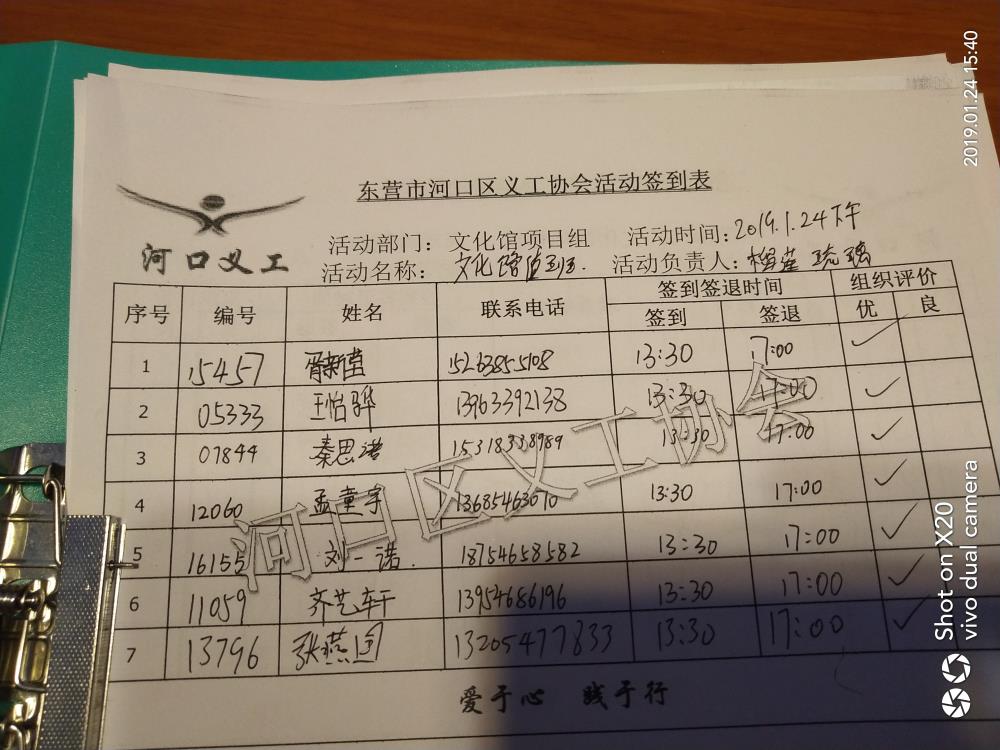 2019.01.24 15:40
东营市河口区义工协会活动签到表
河口义工
活动部门： 文化馆项目组 活动时间：2019.1.24下午
活动名称： 文化馆值班. 活动负责人：琉璃
序号 编号 姓名 联系电话 签到签退时间 组织评价
签到 签退 优 良
1 15457 胥新莹 15263855108 13:30 17:00 ✓
2 05333 王怡骅 13963392138 13:30 17:00 ✓
3 07844 秦思诺 15318338989 13:30 17:00 ✓
4 12060 孟童宇 13685463070 13:30 17:00 ✓
5 16155 刘一诺. 18754658582 13:30 17:00 ✓
6 11059 齐艺轩 13954686196 13:30 17:00 ✓
7 13796 张燕 13205477833 13:30 17:00 ✓
河口区义工协会
爱于心 践于行
Shot on X20
vivo dual camera